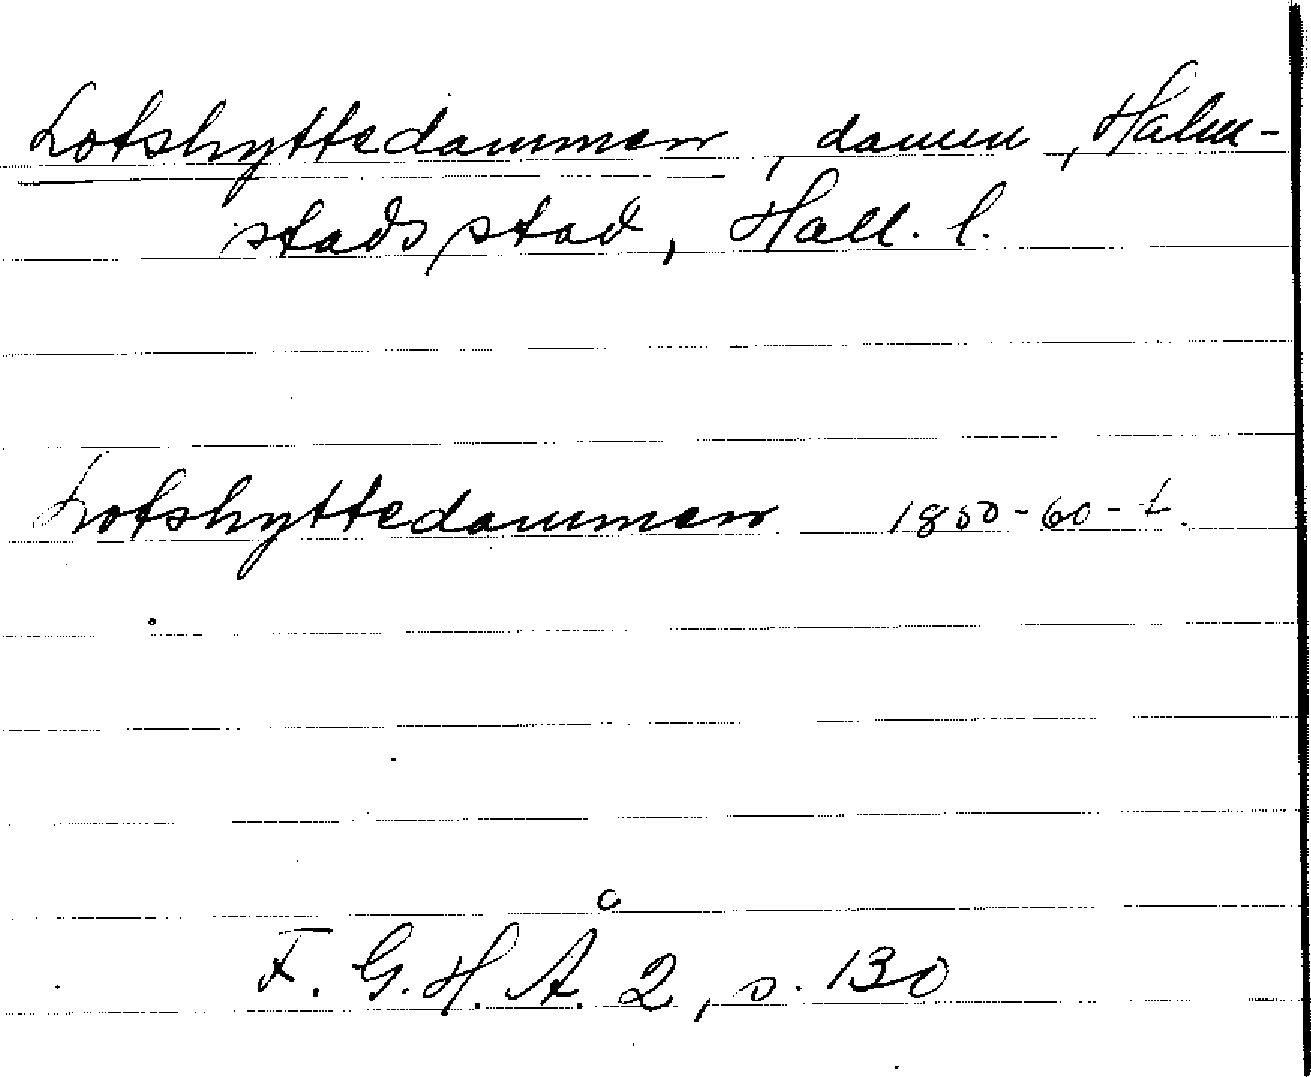 Lotshyttedammen, damm, Halm-
stads stad, Hall. l.
Lotshyttedammen 1850-60-t.
F. G. H. Å. 2, s. 130